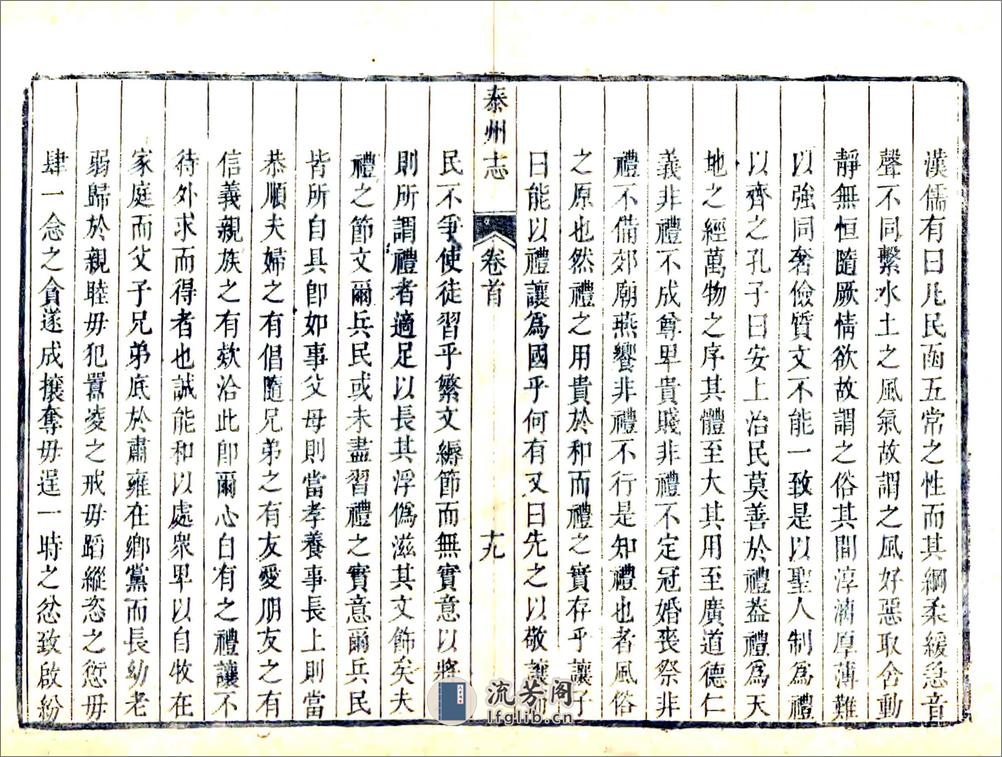 漢儒有曰凡民函五常之性而其綱柔緩急音
聲不同繫水土之風氣故謂之風好惡取舍動
靜無恒隨厥情欲故謂之俗其間淳漓厚薄難
以強同奢儉質文不能一致是以聖人制為禮
以齊之孔子曰安上治民莫善於禮葢禮為天
地之經萬物之序其體至大其用至廣道德仁
義非禮不成尊卑貴賤非禮不定冠婚喪祭非
禮不備郊廟燕饗非禮不行是知禮也者風俗
之原也然禮之用貴於和而禮之實存乎讓子
曰能以禮讓為國乎何有又曰先之以敬讓而
泰州志
卷首
十九
民不爭使徒習乎繁文縟節而無實意以將
則所謂禮者適足以長其浮偽滋其文飾矣夫
禮之節文爾兵民或未盡習禮之實意爾兵民
皆所自具卽如事父母則當孝養事長上則當
恭順夫婦之有倡隨兄弟之有友愛朋友之有
信義親族之有欸洽此卽爾心自有之禮讓不
待外求而得者也誠能和以處衆卑以自牧在
家庭而父子兄弟底於肅雍在鄉黨而長幼老
弱歸於親睦毋犯囂凌之戒毋蹈縱恣之愆毋
肆一念之貪遂成攘奪毋逞一時之忿致啟紛
流芳阁
lfglib.cn